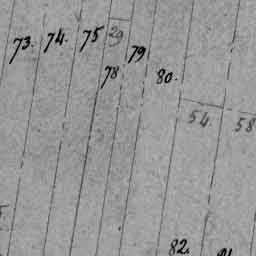 73. 74. 75 29
79
78 80.
54 58
82.